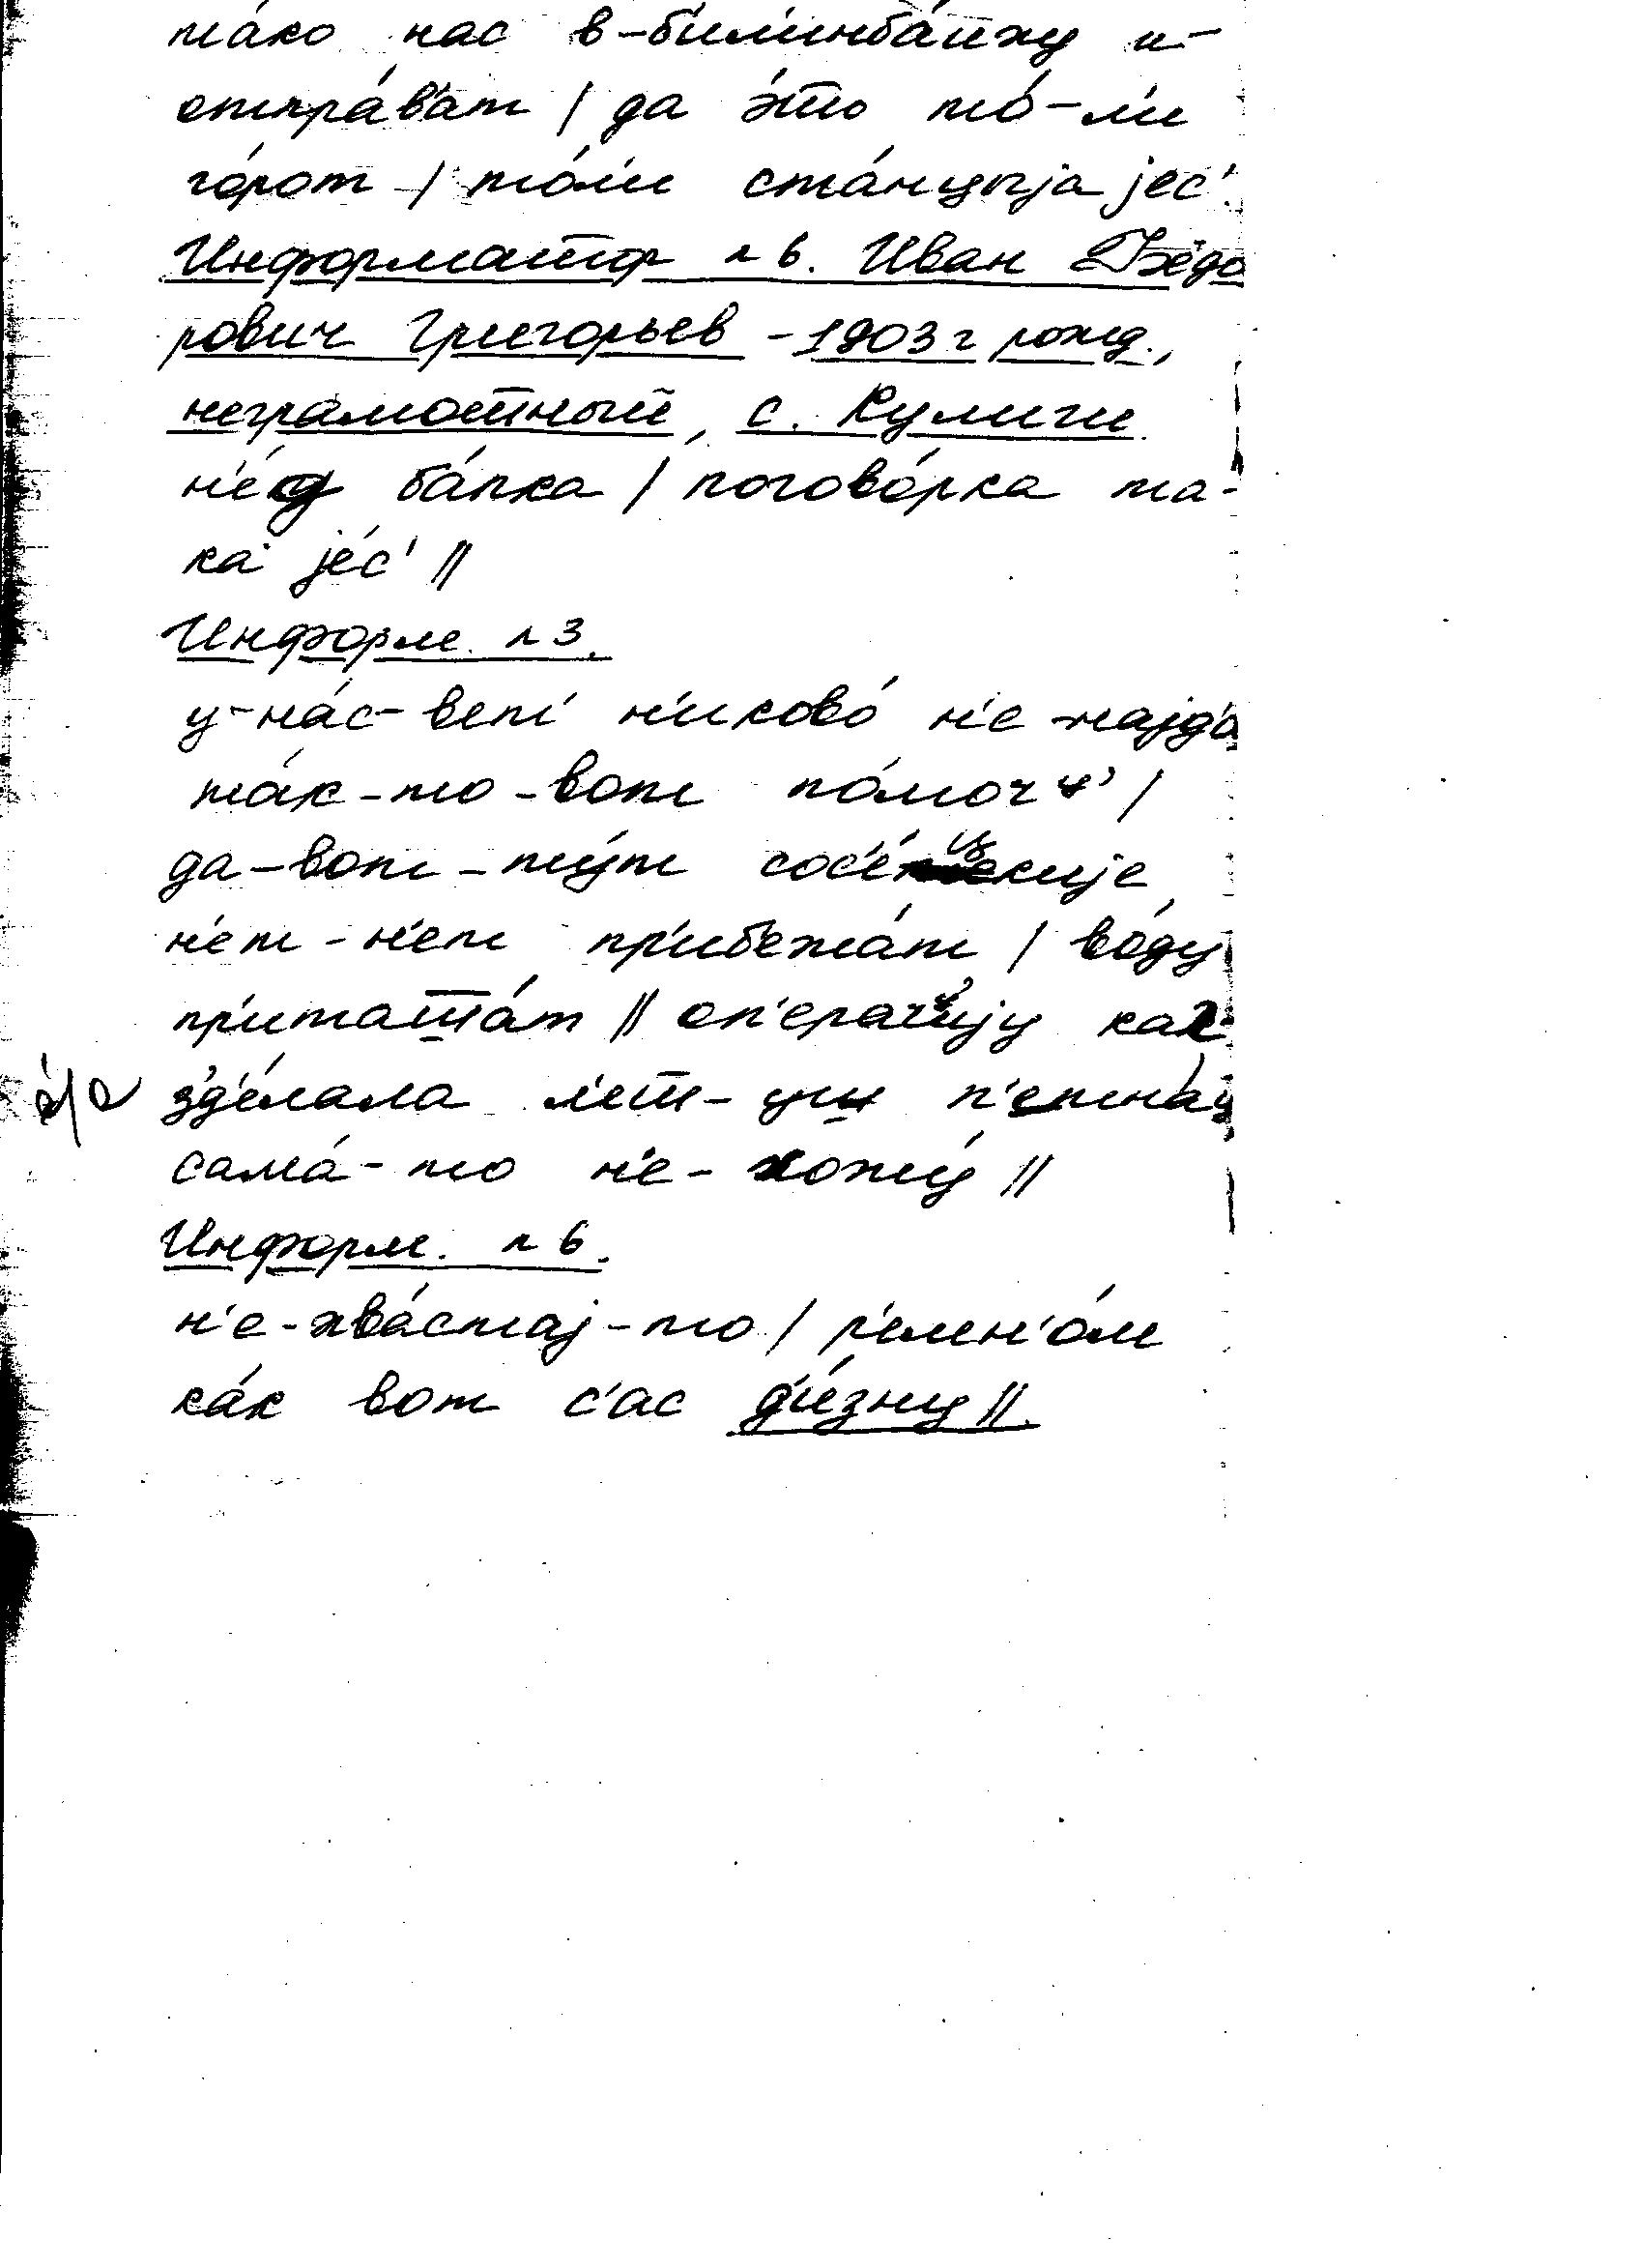 та́ко нас в-б'ил'имба́иху и-
отпра́в'ат / да э́то то́-л'и
го́рот / то́л'и ста́нцыjа jес'
Информатор №6. Иван Фёдо
рович Григорьев - 1903 г рожд.,
неграмотный, с. Кулиги
н'е́д ба́пка / погово́рка та-
ка́ jе́с' //
Информ. №3.
у-на́с-вет' н'иково́ н'е-найд'о
та́к-то-вот по́моч' /
да-вот-ту́т сос'е́цкиjе
н'ет-н'ет пр'ибежа́т / во́ду
пр'иташша́т // оп'ерац'иjу как
з'д'е́лала л'ет-уш п'етна́ц
сама́-то н'е-хожу́ //
Информ. №6.
н'е-хва́стаj-то / р'емн'о́м
ка́к вот с'ас д'и́зну //.